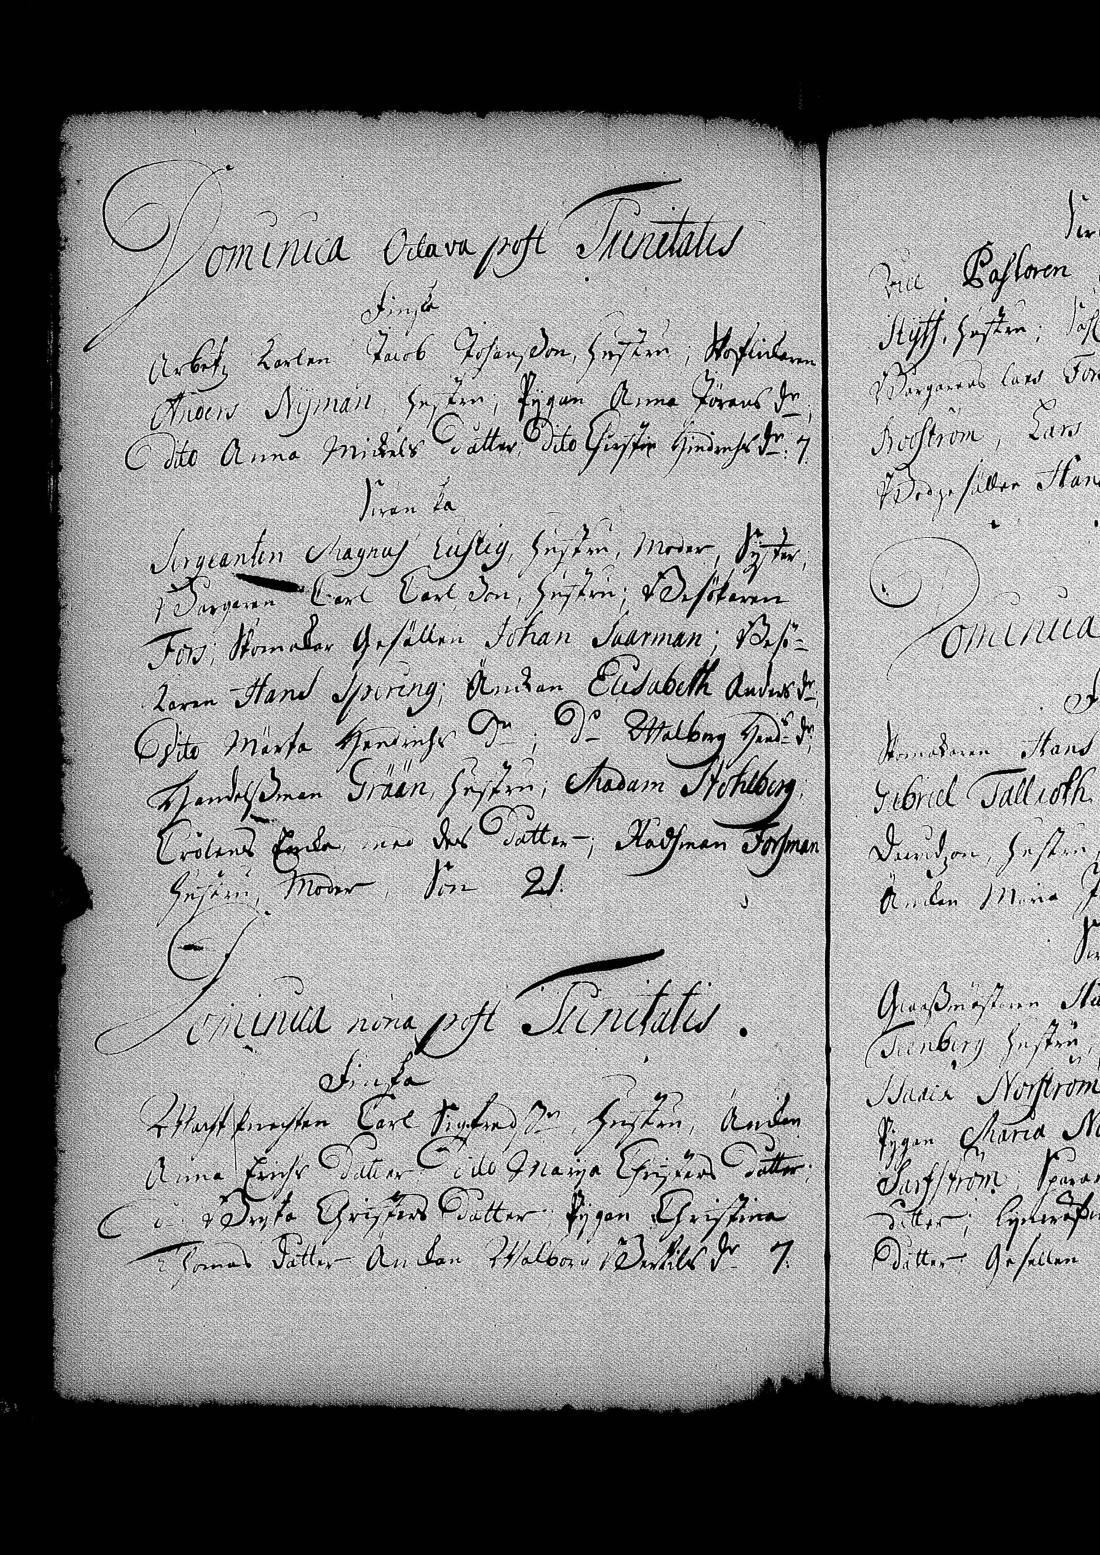 Dominica Octava post Trinitatis
Finska
Arbetz Karlen Jacob Johansson, Hustru;
Anders Nyman, Hustru; Pygan Anna Jörans dr,
Dito Anna Mickels Datter, Dito Hindrichs dr. 7.
Svenska
Sergeanten Magnus Lustig, Hustru, Moder, Syster,
Borgaren Carl Carlson, Hustru; Besökaren
Fors; Skomakar Gesällen Johan Saarman; Besö-
karen Hans Spiring; Änckan Elisabeth Anders dr,
Dito Märta Hendrichs Dr; Do Walborg Hend: dr;
Handelsman Grään, Hustru; Madam Stohlberg;
Enka, med des Datter; Rådsman Forsman
Hustru, Moder, Son 21.
Dominica nona post Trinitatis.
Finska
Wachtknechten Carl Sigfred Sn, Hustru, Änckan
Anna Erichs Datter Dito Marja Christers Datter;
Brita Christers Datter; Pygan Christina
Thomas Datter Änckan Walborg Bertils dr 7.
Pastoren
Hustru;
Borgarens Lars
Rooström, Lars
Hans
Dominica
Skomakaren Hans
Gabriel Tallroth
Davidzon, Hustru
Änckan Maria
Ternberg Hustru
Isaack Norström
Pygan Maria
datter;
Datter Gesällen